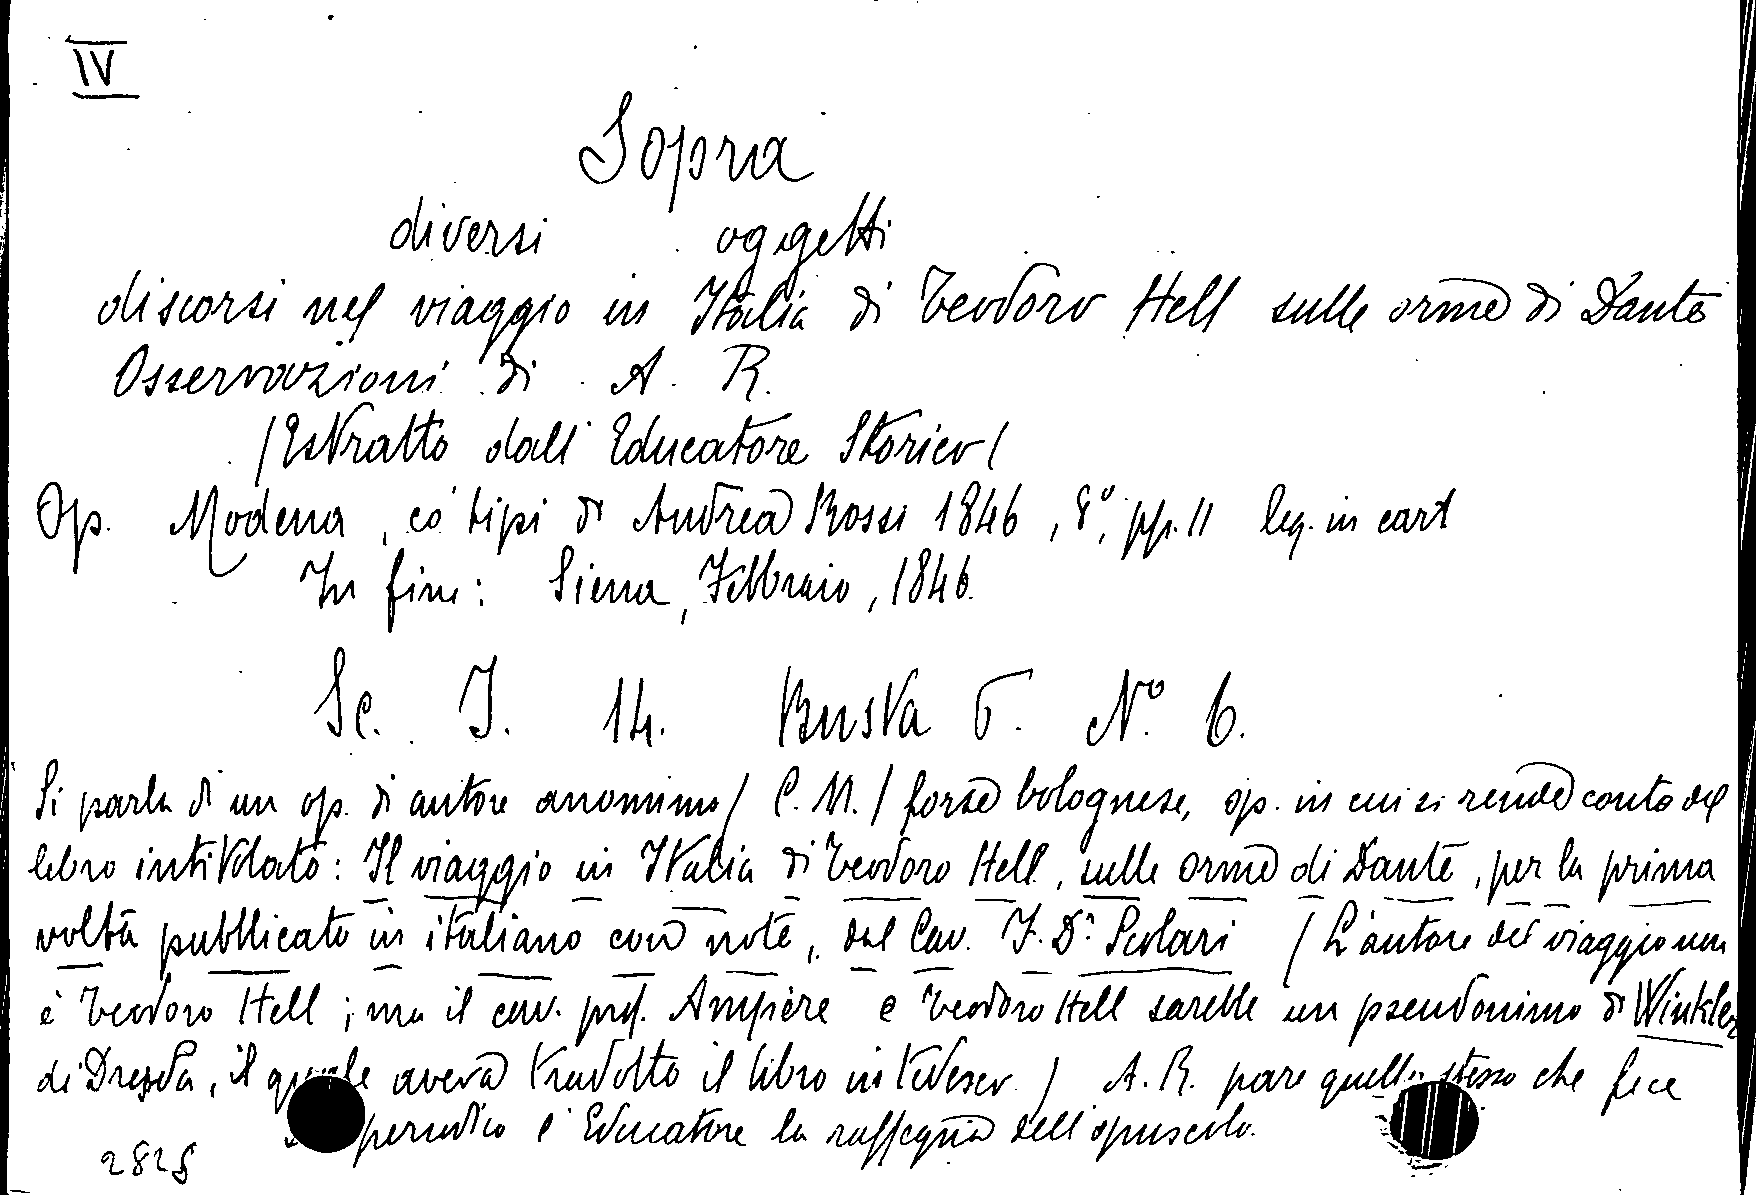 IV
Sopra
diversi oggetti
discorsi nel viaggio in Italia di Teodoro Hell sulle orme di Dante
Osservazioni di A. R.
(Estratto dall'Educatore Storico)
Op. Modena, co' tipi di Andrea Rossi 1846, 8°, pp. 11 leg. in cart
In fine: Siena, Febbraio, 1846.
Sc. I. 14. Busta 6. N° 6.
Si parla di un op. di autore anonimo (C. M.) forse bolognese, op. in cui si rende conto del
libro intitolato: Il viaggio in Italia di Teodoro Hell, sulle orme di Dante, per la prima
volta pubblicato in italiano con note, dal Cav. F. Dr. Scolari (L'autore del viaggio non
è Teodoro Hell; ma il cav. prof. Ampère e Teodoro Hell sarebbe un pseudonimo di Winkler
di Dresda, il quale aveva tradotto il libro in tedesco.) A. R. pare quello stesso che fece
periodico l'Educatore la rassegna dell'opuscolo.
2825